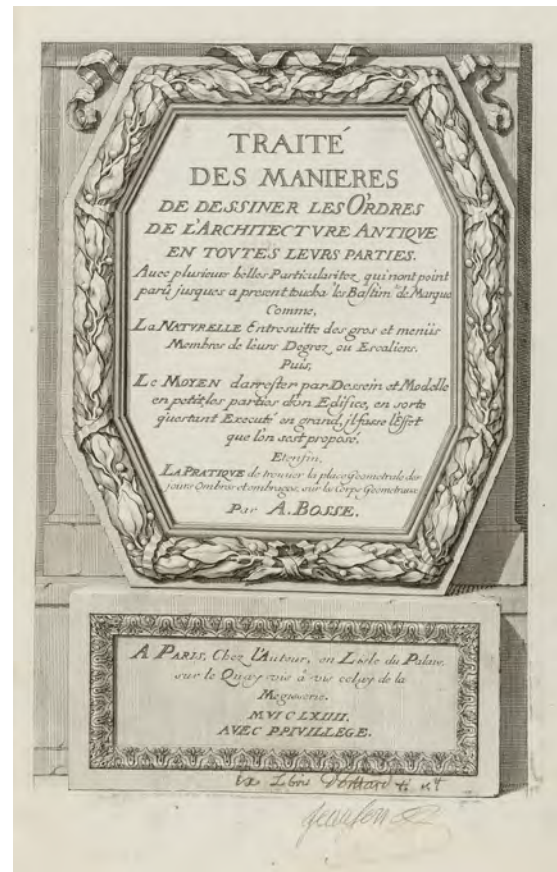 TRAITÉ
DES MANIERES
DE DESSINER LES ORDRES
DE L'ARCHITECTVRE ANTIQVE
EN TOVTES LEVRS PARTIES.
Auec plusieurs belles Particularitez, qui nont point
parû jusques a present, touchãt les Bastim.ts de Marque
Comme,
LA NATVRELLE Entresuitte des gros et menüs
Membres de leurs Degrez ou Escaliers.
Puis,
LE MOYEN d'arrester par Dessein et Modelle
en petit, les parties d'un Edifice, en sorte
qu'estant Executé en grand, jl fasse l'Effet
que l'on s'est proposé.
Et enfin,
LA PRATIQVE de trouuer la place Geometrale des
jours Ombres et ombrages, sur les Corps Geometraux
Par A. BOSSE.
A PARIS, Chez l'Auteur, en Lisle du Palais,
sur le Quay vis à vis celuy de la
Megisserie.
M. VI C LXIIII.
AVEC PRIVILLEGE.
Ex Libris